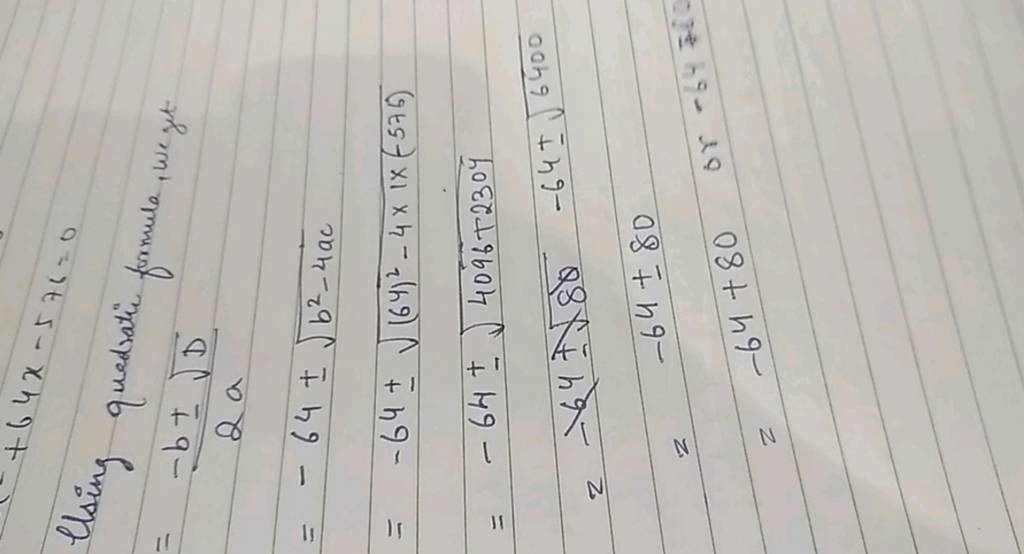 + 64x - 576 = 0
Using quadratic formula, we get
= -b ± √D
2a
= - 64 ± √b² - 4ac
= -64 ± √(64)² - 4 x 1 x (-576)
= - 64 ± √4096 + 2304
= -64 ± √80 -64 ± √6400
= -64 ± 80
= -64 + 80 or -64